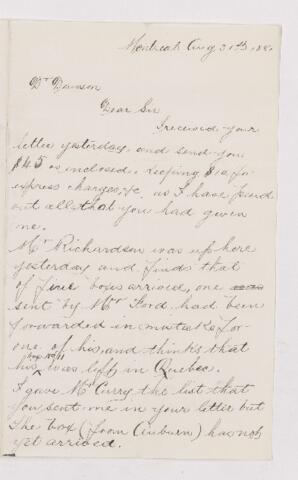 Montreal Aug 31st 188
Dr Dawson
Dear Sir
I received your
letter yesterday and send you
$45 inclosed. Keeping $10 for
express charges &c. as I have paid
out all that you had given
me.
Mr Richardson was up here
yesterday and finds that
of five boxes arrived, one
sent by Mr Ford, had been
forwarded in mistake for
one of his, and thinks that
box No 11
his was left in Quebec.
I gave Mr Curry the list that
you sent me in your letter but
the box (from Auburn) has not
yet arrived.